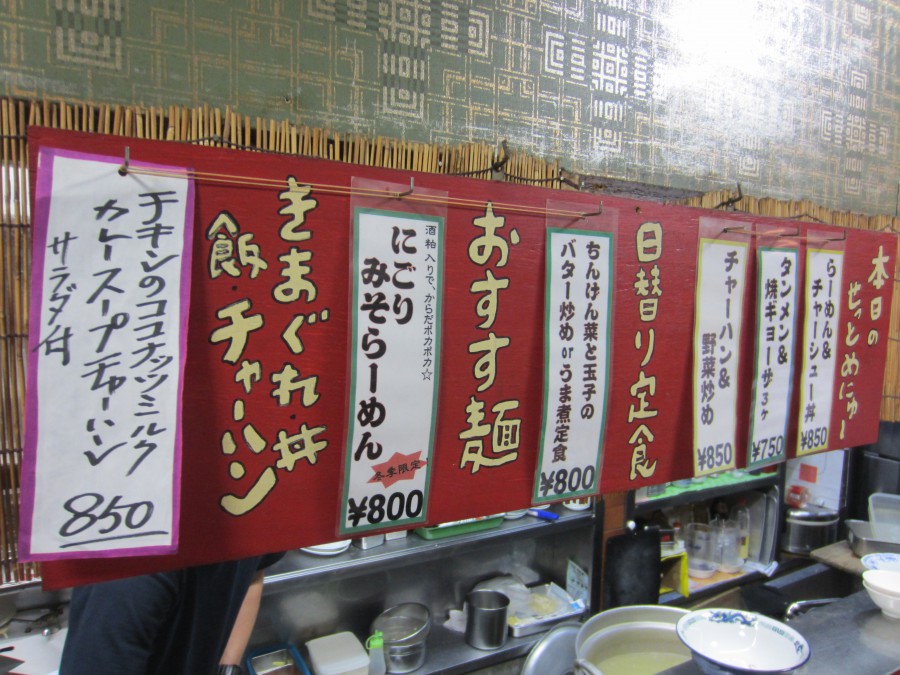 本日の
せっとめにゅー
らーめん&
チャーシュー丼
¥850
タンメン&
焼ギョーザ3ケ
¥750
チャーハン&
野菜炒め
¥850
日替り定食
ちんげん菜と玉子の
バター炒めorうま煮定食
¥800
おすすす麺
酒粕入りで、からだポカポカ☆
にごり
みそらーめん
冬季限定
¥800
きまぐれ・丼
飯・チャーハン
チキンのココナッツミルク
カレースープチャーハン
サラダ付
850